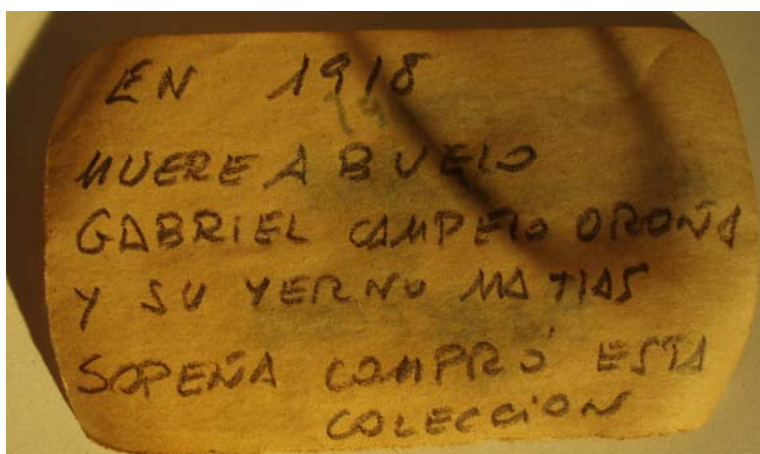 EN 1918
MUERE ABUELO
GABRIEL CAMPELO OROÑA
Y SU YERNO MATIAS
SOPEÑA COMPRÓ ESTA
COLECCIÓN